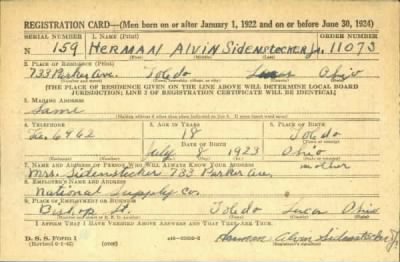 REGISTRATION CARD—(Men born on or after January 1, 1922 and on or before June 30, 1924)
SERIAL NUMBER 1. NAME (Print) ORDER NUMBER
N 159 HERMAN Alvin Sidenstecker Jr. 11073
(First) (Middle) (Last)
2. PLACE OF RESIDENCE (Print)
733 Parker Ave. Toledo Lucas Ohio
[THE PLACE OF RESIDENCE GIVEN ON THE LINE ABOVE WILL DETERMINE LOCAL BOARD
JURISDICTION; LINE 2 OF REGISTRATION CERTIFICATE WILL BE IDENTICAL]
3. MAILING ADDRESS
Same
4. TELEPHONE 5. AGE IN YEARS 6. PLACE OF BIRTH
6462 18 Toledo
DATE OF BIRTH
July 8 1923 Ohio
7. NAME AND ADDRESS OF PERSON WHO WILL ALWAYS KNOW YOUR ADDRESS mother
Mrs. Sidenstecker 733 Parker Ave.
8. EMPLOYER'S NAME AND ADDRESS
National Supply Co.
9. PLACE OF EMPLOYMENT OR BUSINESS
Bishop St. Toledo Lucas Ohio
I AFFIRM THAT I HAVE VERIFIED ABOVE ANSWERS AND THAT THEY ARE TRUE.
D. S. S. Form 1
Herman Alvin Sidenstecker Jr.